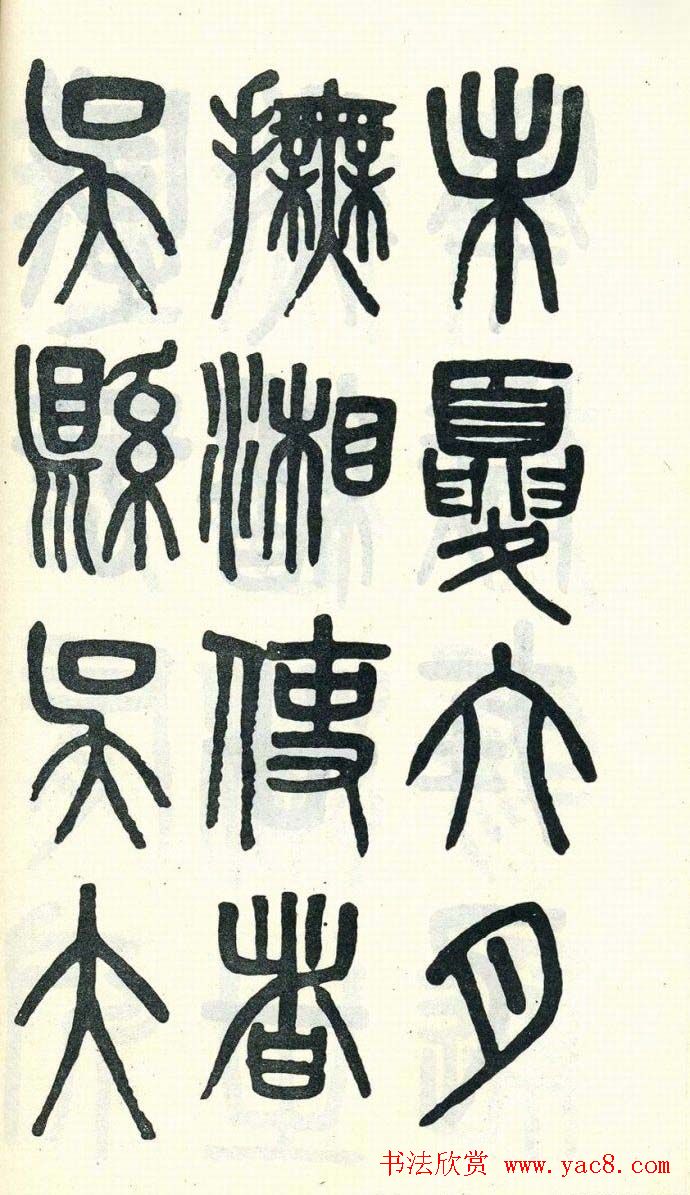 未夏六月
撫湘使者
吳縣吳大
书法欣赏 www.yac8.com